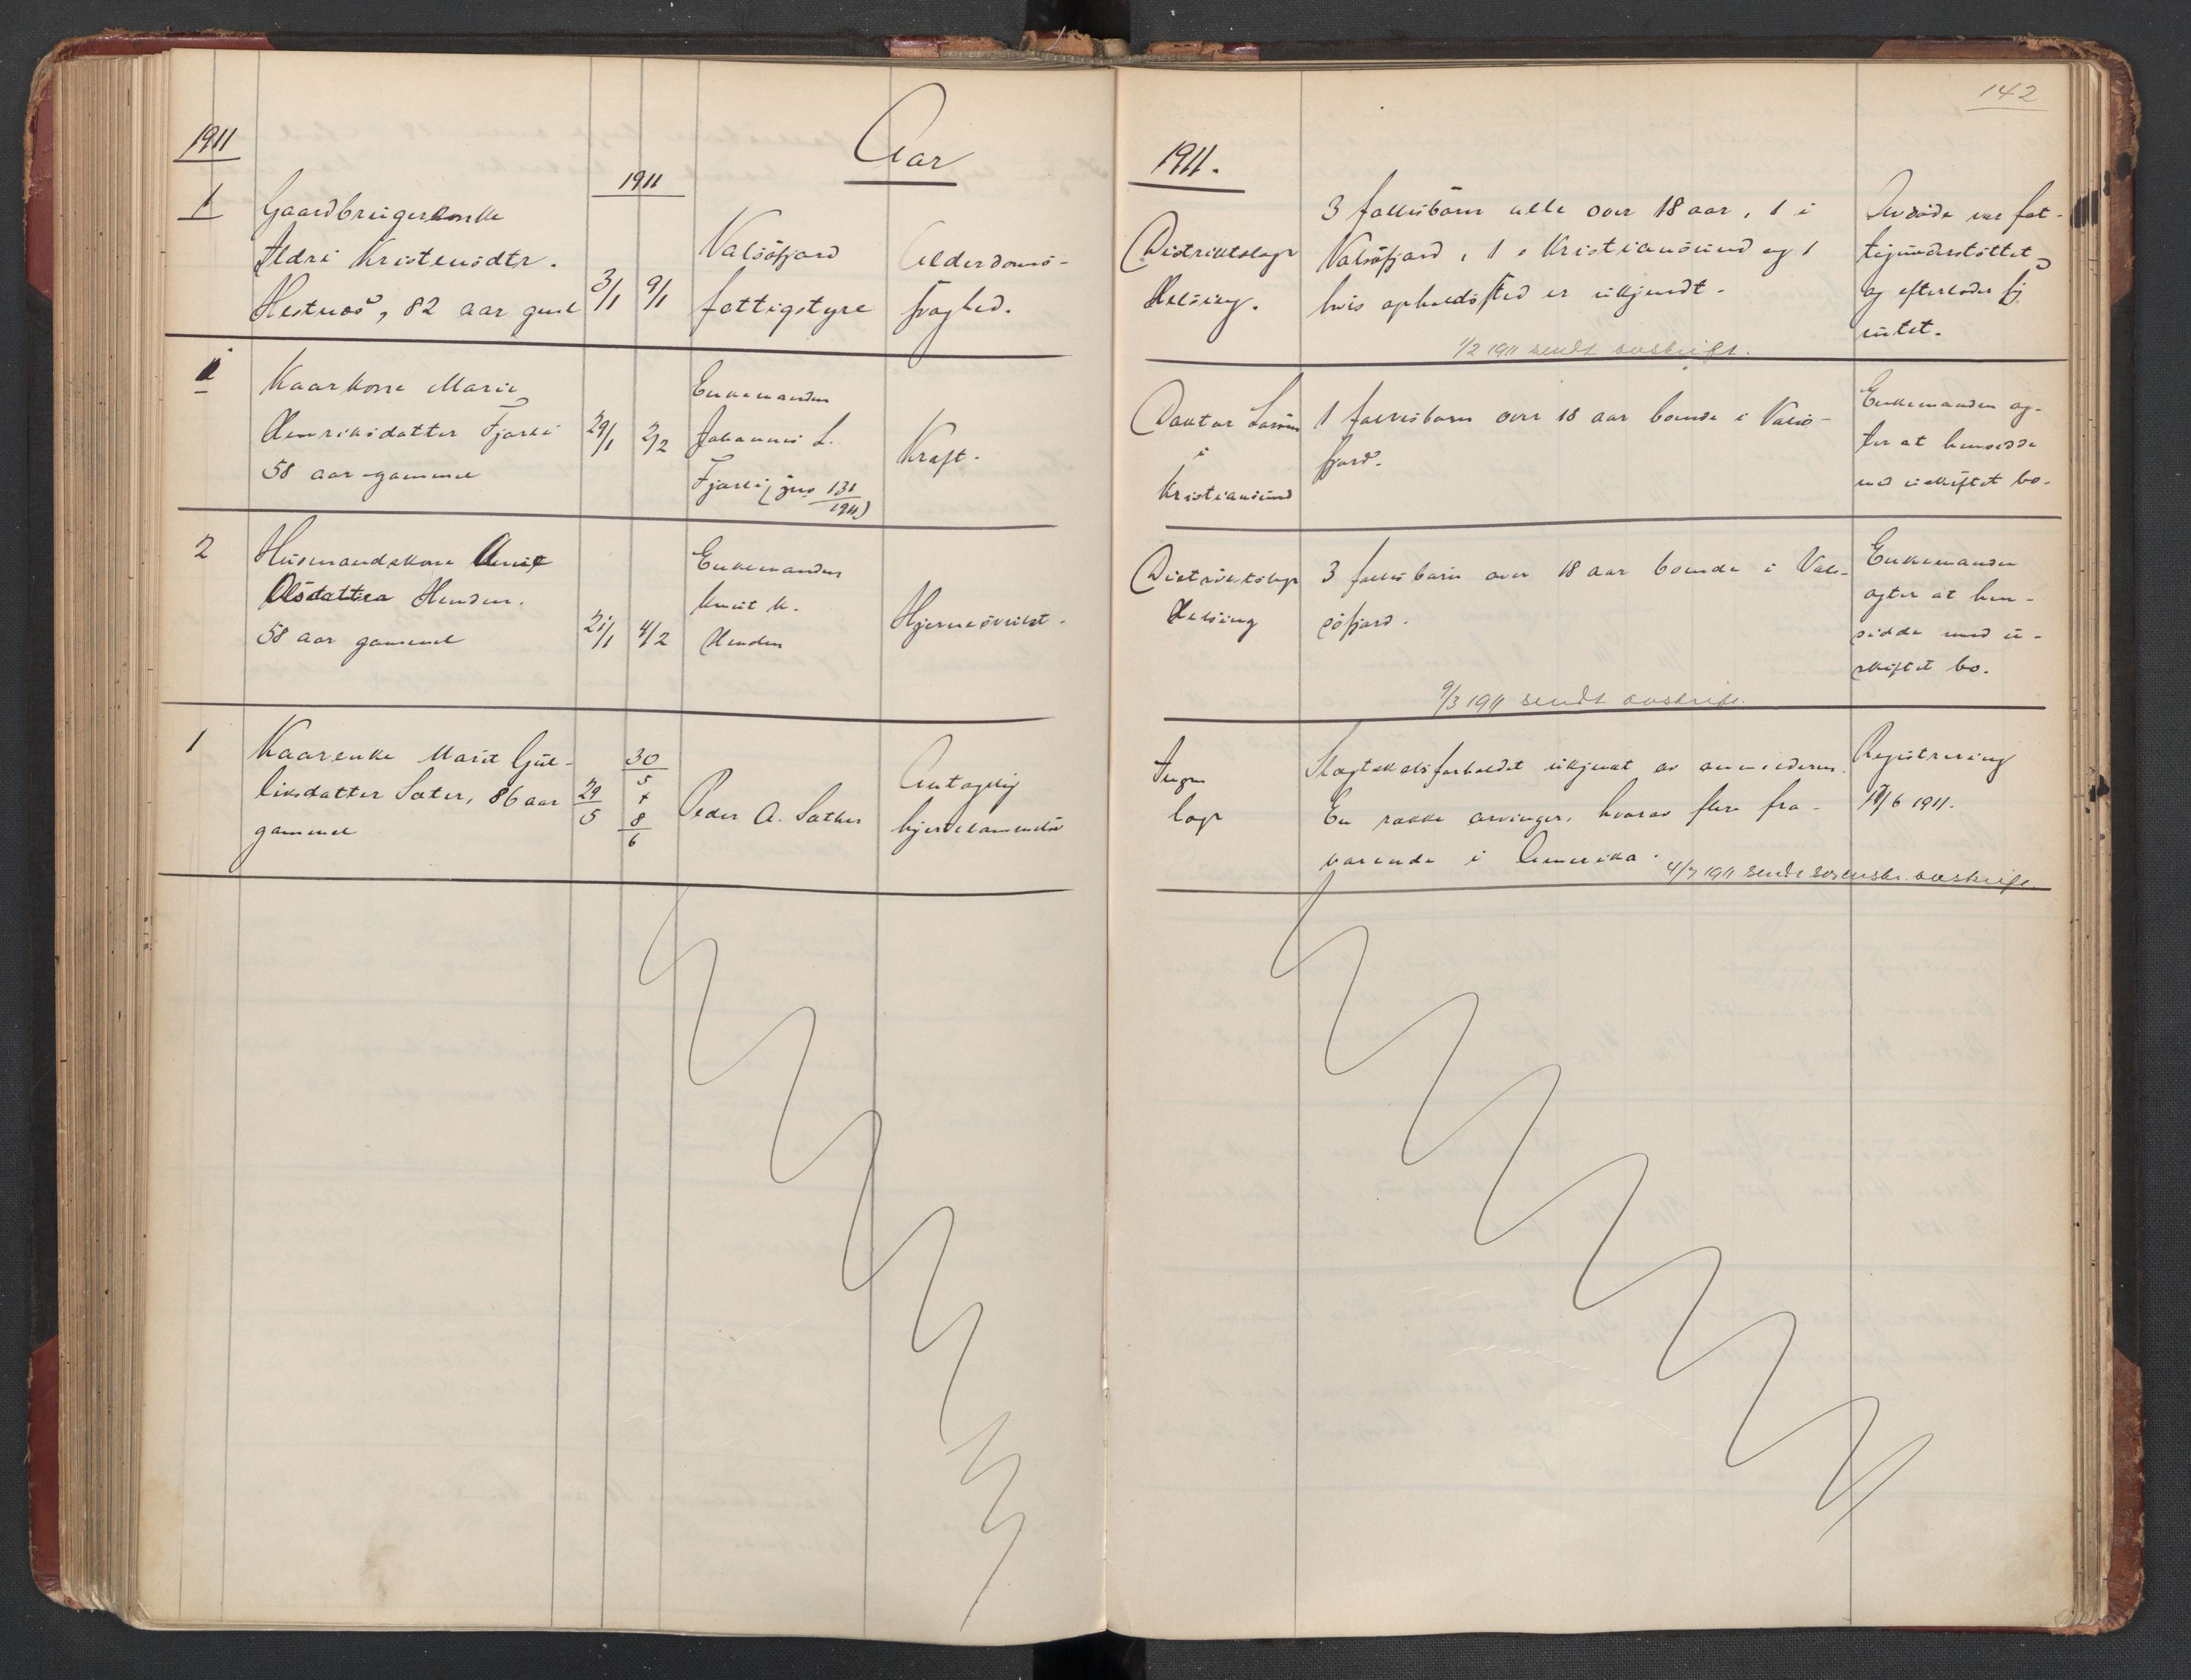 142
Aar
1911.
1911
1911
1
Gaardbrugerenke
Ildri Kristensdtr.
Hestnæs, 82 aar gml
3/1
9/1
Valsøfjord
fattigstyre
Alderdoms-
svaghed.
Distriktslæge
Helsing.
3 fællesbørn alle over 18 aar, 1 i
Valsøfjord, 1 i Kristiansund og 1
hvis opholdssted er ukjendt.
1/2 1911 sendt avskrift.
Avdøde var fat-
tigunderstøttet
og efterlader sig
intet.
1
Kaarkone Marit
Henriksdatter Fjærli
58 aar gammel
29/1
2/2
Enkemanden
Johannes L.
Fjærli (jno 131/1911)
Kræft.
Doktor Larsen
i
Kristiansund
1 fællesbarn over 18 aar boende i Valsø-
fjord.
Enkemanden ag-
ter at hensidde
med uskiftet bo.
2
Husmandskone Marit
Olsdatter Henden.
58 aar gammel
21/1
4/2
Enkemanden
Knut K.
Henden
Hjernesvulst.
Distriktslæge
Helsing
3 fællesbarn over 18 aar boende i Val-
søfjord.
9/3 1911 sendt avskrift.
Enkemanden
agter at hen-
sidde med u-
skiftet bo.
1
Kaarenke Marit Gul-
liksdatter Sæter, 86 aar
gammel
29/5
30/5
+
8/6
Peder A. Sæther
Antagelig
hjertelammelse
Ingen
læge
Slegtskabsforholdet ukjendt av anmelderen.
En række arvinger, hvorav flere fra-
værende i Amerika.
4/7 1911 sendt sorenskr. avskrift.
Registrering
17/6 1911.